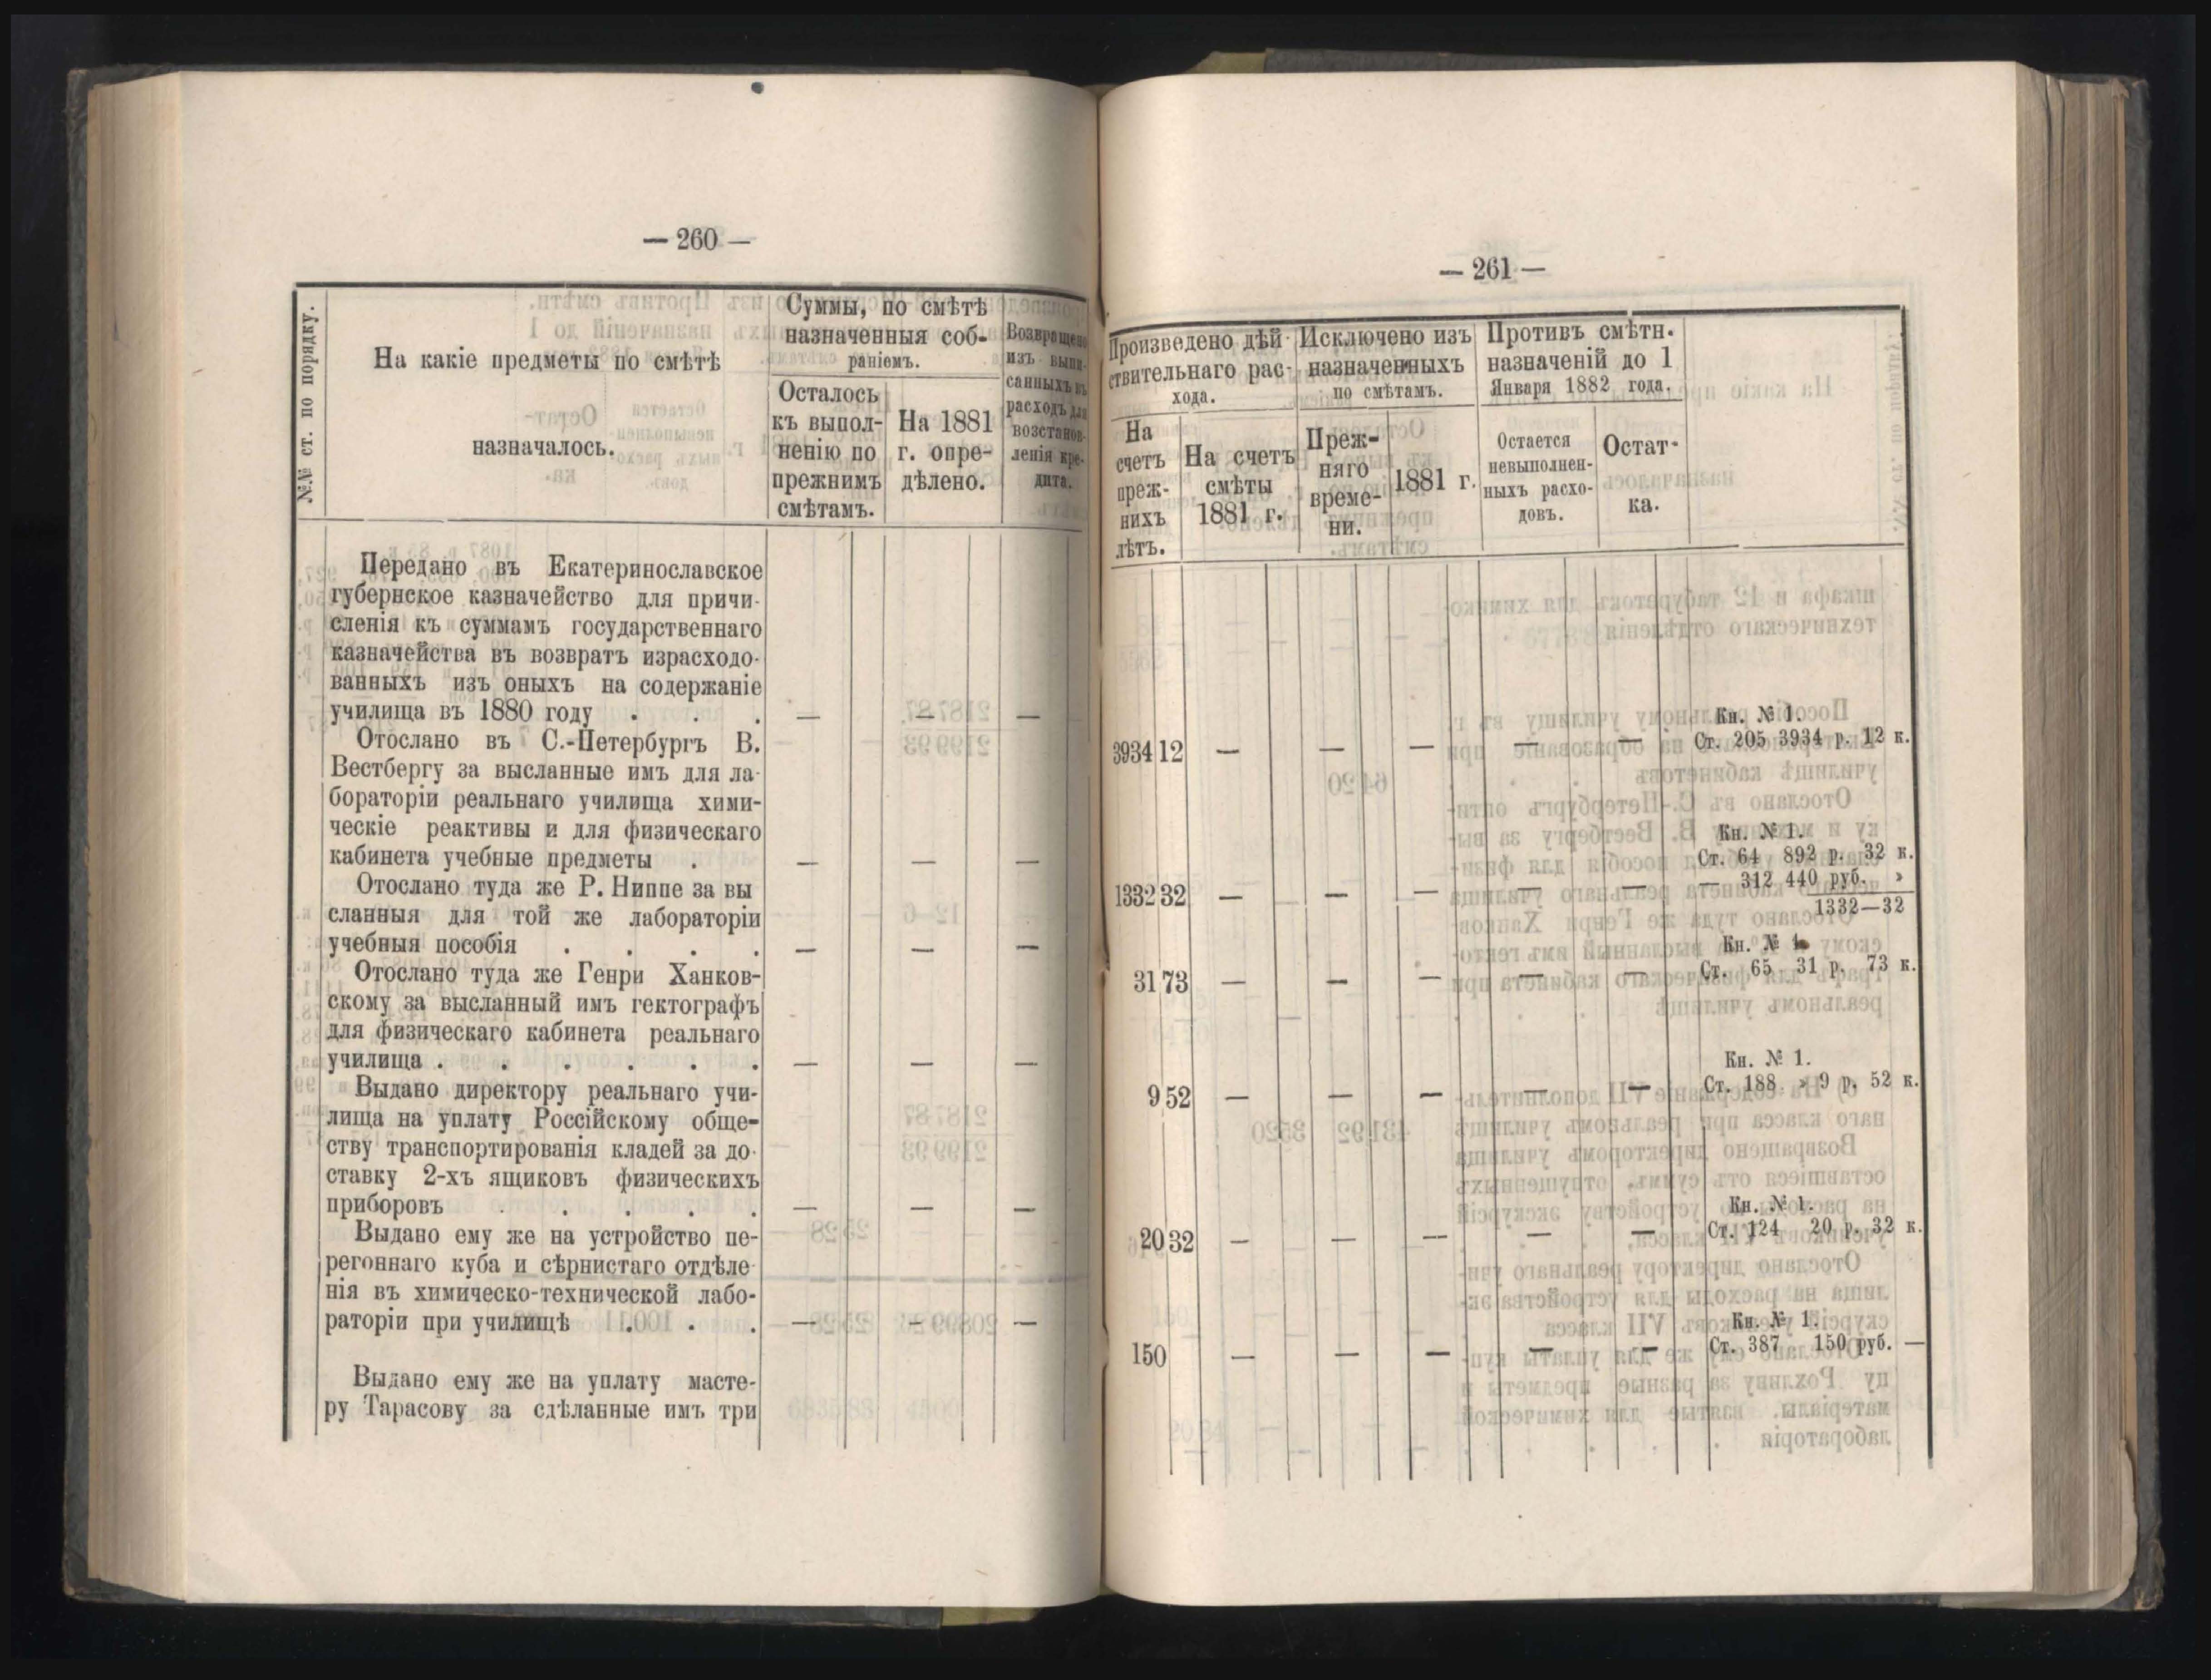 — 260 —
№№ ст. по порядку.
На какіе предметы по смѣтѣ
назначалось.
Суммы, по смѣтѣ
назначенныя соб-
раніемъ.
Осталось
къ выпол-
ненію по
прежнимъ
смѣтамъ.
На 1881
г. опре-
дѣлено.
Возвращено
изъ выпи-
санныхъ въ
расходъ для
возстанов-
ленія кре-
дита.
Передано въ Екатеринославское
губернское казначейство для причи-
сленія къ суммамъ государственнаго
казначейства въ возвратъ израсходо-
ванныхъ изъ оныхъ на содержаніе
училища въ 1880 году . . . — — —
Отослано въ С.-Петербургъ В.
Вестбергу за высланные имъ для ла-
бораторіи реальнаго училища хими-
ческіе реактивы и для физическаго
кабинета учебные предметы . — — —
Отослано туда же Р. Ниппе за вы
сланныя для той же лабораторіи
учебныя пособія . . . . — — —
Отослано туда же Генри Ханков-
скому за высланный имъ гектографъ
для физическаго кабинета реальнаго
училища . . . . . . — — —
Выдано директору реальнаго учи-
лища на уплату Россійскому обще-
ству транспортированія кладей за до-
ставку 2-хъ ящиковъ физическихъ
приборовъ . . . . . — — —
Выдано ему же на устройство пе-
регоннаго куба и сѣрнистаго отдѣле-
нія въ химическо-технической лабо-
раторіи при училищѣ . . . — — —
Выдано ему же на уплату масте-
ру Тарасову за сдѣланные имъ три
— 261 —
Произведено дѣй-
ствительнаго рас-
хода.
На
счетъ
преж-
нихъ
лѣтъ.
На счетъ
смѣты
1881 г.
Исключено изъ
назначенныхъ
по смѣтамъ.
Преж-
няго
време-
ни.
1881 г.
Противъ смѣтн.
назначеній до 1
Января 1882 года.
Остается
невыполнен-
ныхъ расхо-
довъ.
Остат-
ка.
Кн. № 1.
3934 12 — — — — — Ст. 205 3934 р. 12 к.
Кн. № 1.
Ст. 64 892 р. 32 к.
1332 32 — — — — — — 312 440 руб. »
1332—32
Кн. № 1.
31 73 — — — — — Ст. 65 31 р. 73 к.
Кн. № 1.
9 52 — — — — — Ст. 188 » 9 р. 52 к.
Кн. № 1.
20 32 — — — — — Ст. 124 20 р. 32 к.
Кн. № 1.
150 — — — — — Ст. 387 150 руб. —